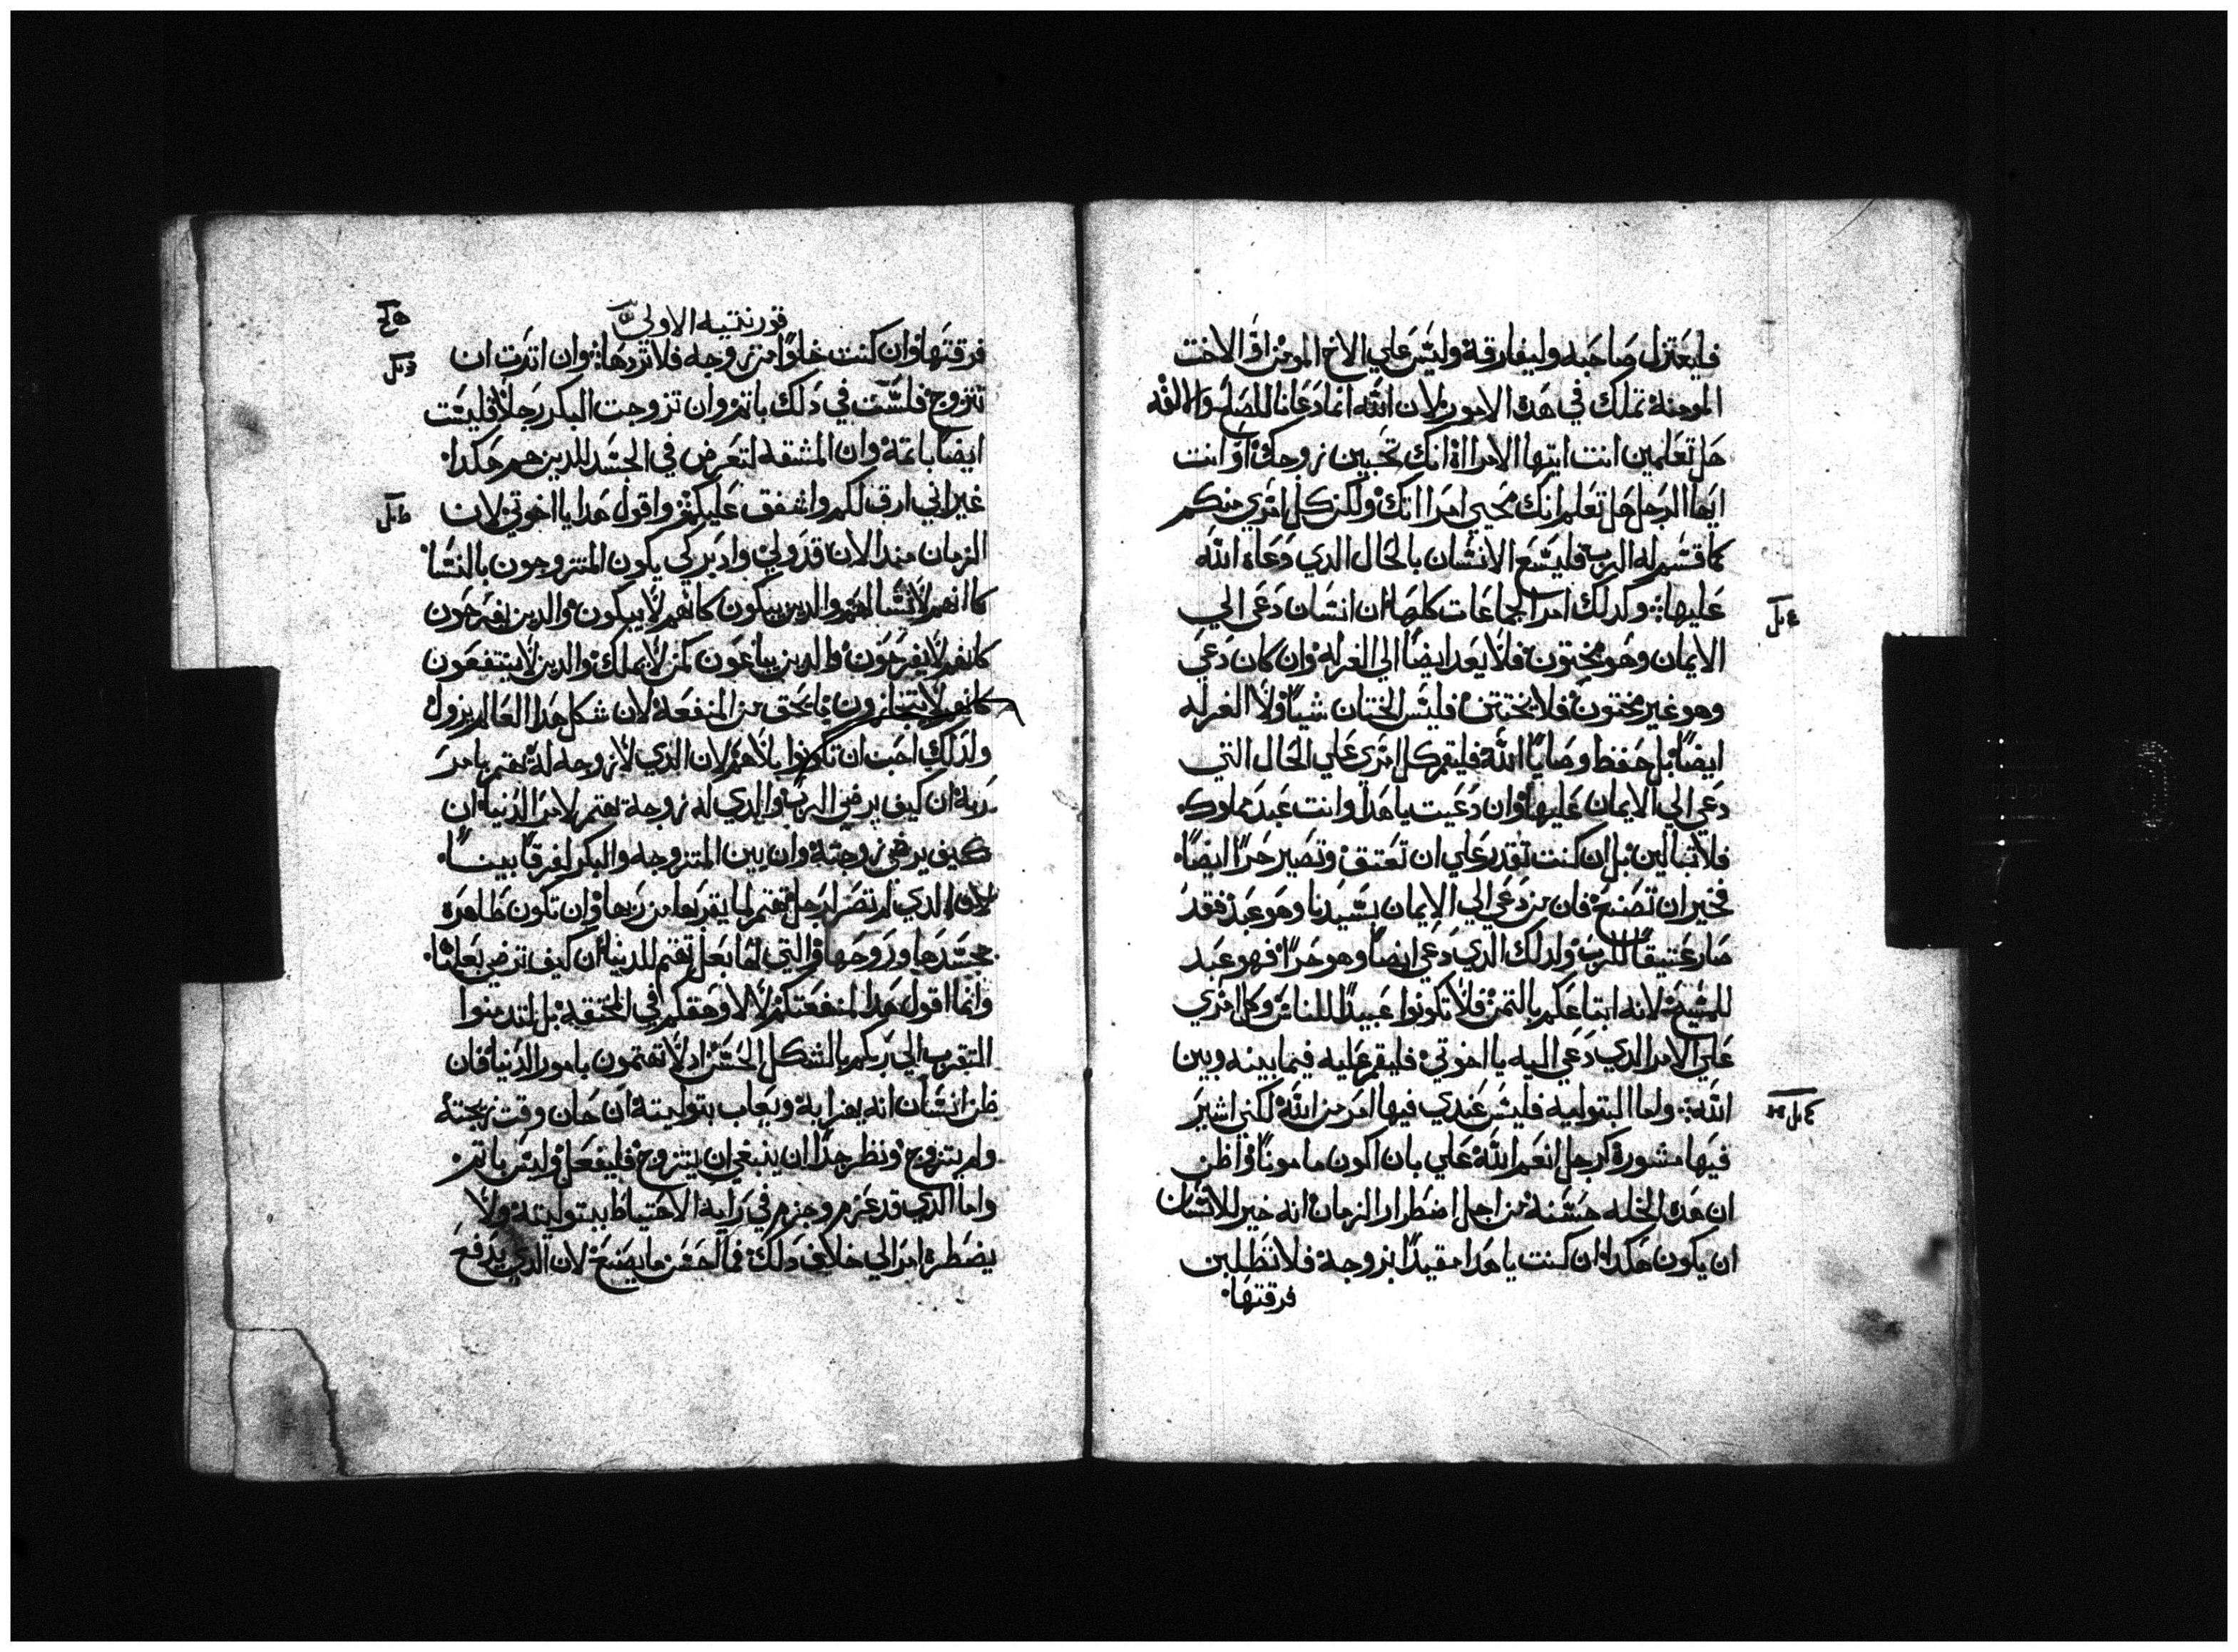 فليعتزل صاحبه وليفارقه وليس علي الاخ المومن او الاخت
المومنة تملك في هده الامور لان الله انما دعانا للصلح والالفه
هل تعلمين انت ايتها الامراة انك تحيين زوجك او انت
ايها الرجل هل تعلم انك محيي امراتك ولكن كل امري منكم
كما قسم له الرب فليسع الانسان بالحال الدي دعاه الله
عليها وكدلك امر الجماعات كلها ان انسان دعي الي
الايمان وهو مختون فلا يعد ايضا الي الغرله وان كان دعي
وهو غير مختون فلا يختتن فليس الختان شيا ولا الغرله
ايضا بل حفظ وصايا الله فليقم كل امري علي الحال التي
دعي الي الايمان عليها وان دعيت يا هدا وانت عبد مملوك
فلا تبالين بل ان كنت تقدر علي ان تعتق وتصير حرا ايضا
فخير ان تصنع فان من دعي الي الايمان بسيدنا وهو عبد فقد
صار عتيقا للرب ولدلك الدي دعي ايضا وهو حرا فهو عبد
للمسيح لانه ابتاعكم بالتمن فلا تكونوا عبيدا للناس وكل امري
علي الامر الدي دعي اليه يا اخوتي فليقم عليه فيما بينه وبين
الله واما البتوليه فليس عندي فيها امر من الله لكني اشير
فيها مشورة كرجل انعم الله علي بان اكون مامونا واظن
ان هده الخله حسنه من اجل اضطرار الزمان انه خير للانسان
ان يكون هكدا ان كنت يا هدا مقيدا بزوجة فلا تطلبن
فرقتها
قورنتيه الاولي
فرقتها وان كنت خلوا من زوجه فلا تردها وان اتردت ان
تتزوج فلست في دلك باتم وان تزوجت البكر رجلا فليست
ايضا باتمة وان المشقه لتعرض في الجسد للدين هم هكدا
غير اني ارق لكم واشفق عليكم واقول هدا يا اخوتي لان
الزمان مند الان قد ولي وادبر لكي يكون المتزوجون بالنسا
كاانهم لا نسا لهم والدين يبكون كانهم لا يبكون والدين يفرحون
كانهم لا يفرحون والدين يباعون كمن لا يملك والدين لا ينتفعون
كانهم لا يتجازون بما يحق من المنفعة لان شكل هدا العالم يزول
ولدلك احب ان تكونوا بلا هم لان الدي لا زوجه له يهتم بامر
ربه ان كيف يرضي الرب والدي له زوجة يهتم لامر الدنيا ان
كيف يرضي زوجته وان بين المتزوجه والبكر لفرقا بينا
لان الدي لم تصر لرجل تهتم لما يقربها من ربها وان تكون طاهره
بجسدها وروحها والتي لها بعل تهتم للدنيا ان كيف ترضي بعلها
وانما اقول هدا لمنفعتكم لا لاوهقكم في المخنقه بل لتدمنوا
التقرب الي ربكم بالشكل الحسن اد لا تهتمون بامور الدنيا فان
ظن انسان انه يهزا به ويعاب ببتوليته ان حان وقت زيجته
ولم يتزوج ونظر هدا ان ينبغي ان يتزوج فليفعل وليس باتم
واما الدي قد عزم وجزم في رايه الاحتياط ببتوليته ولا
يضطره امر الي خلاف دلك فما احسن ما يصنع لان الدي يدفع